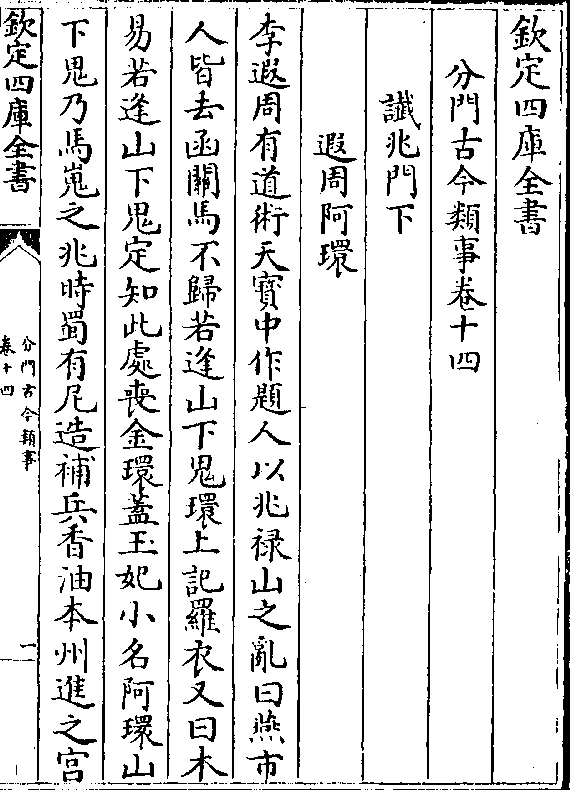 欽定四庫全書
分門古今類事卷十四
讖兆門下
遐周阿環
李遐周有道術天寶中作題人以兆祿山之亂曰燕市
人皆去函關馬不歸若逢山下鬼環上記羅衣又曰木
易若逢山下鬼定知此處喪金環蓋玉妃小名阿環山
下鬼乃馬嵬之兆時蜀有尼造補兵香油本州進之宮
欽定四庫全書
分門古今類事
卷十四
一